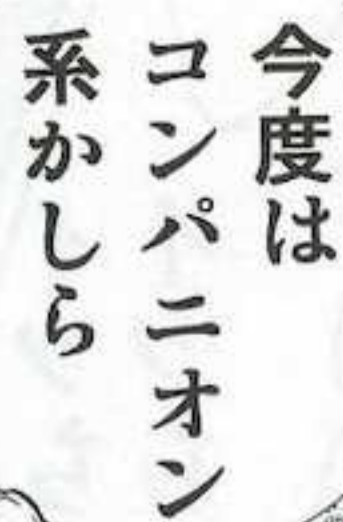 今度は
コンパニオン
系かしら